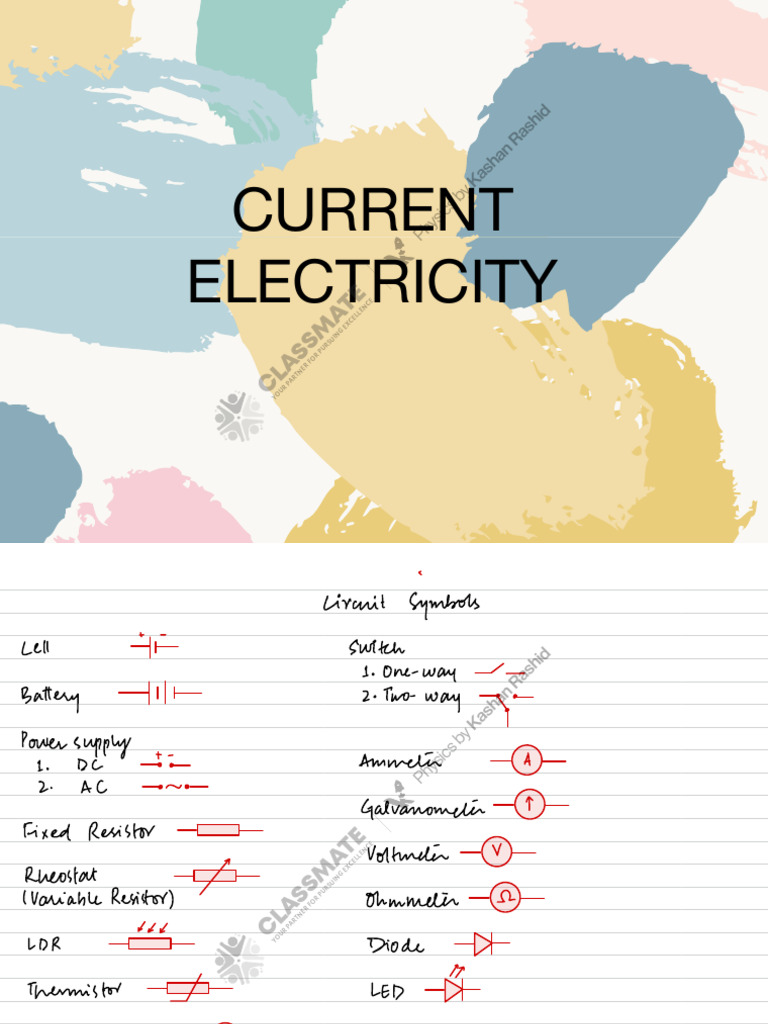 CURRENT
ELECTRICITY
Physics by Kashan Rashid
CLASSMATE
YOUR PARTNER FOR PURSUING EXCELLENCE
Circuit Symbols
Cell + -
Battery
Power supply
1. DC + -
2. AC ~
Fixed Resistor
Rheostat
(Variable Resistor)
LDR
Thermistor
Switch
1. One-way
2. Two-way
Ammeter A
Galvanometer ↑
Voltmeter V
Ohmmeter Ω
Diode
LED
Physics by Kashan Rashid
CLASSMATE
YOUR PARTNER FOR PURSUING EXCELLENCE